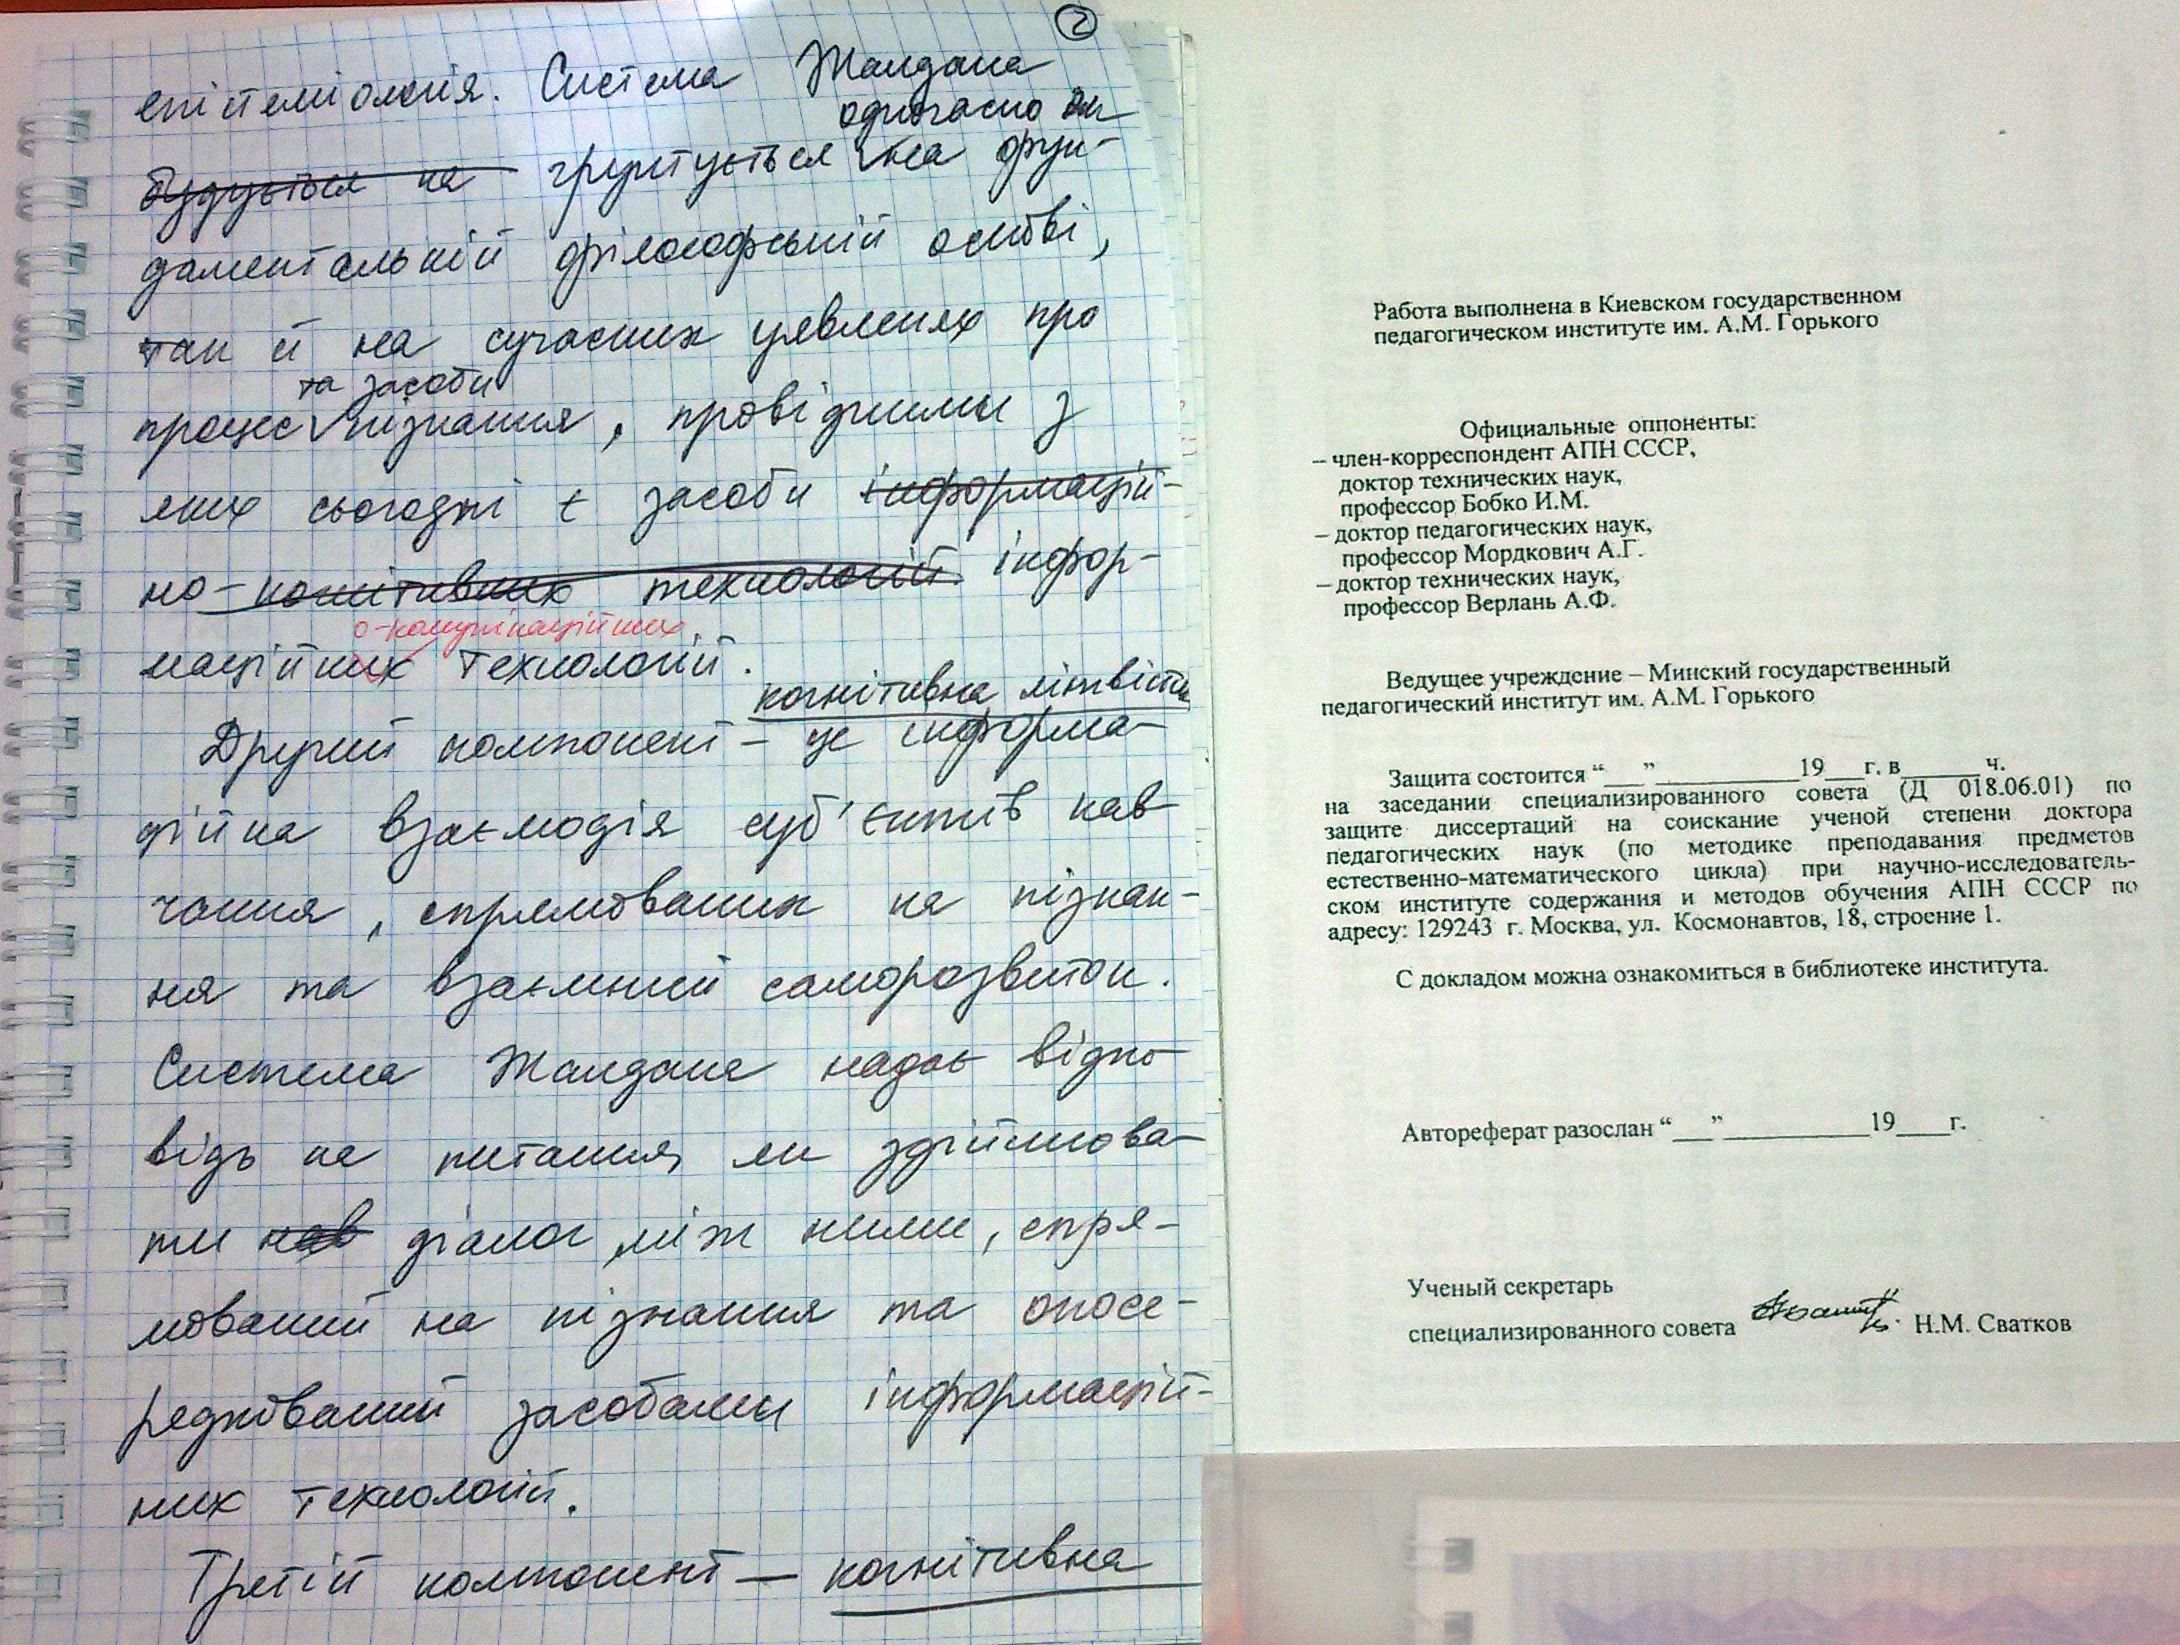 2
епістеміологія. Система Жалдака
одночасно як
будується на ґрунтується на фун-
даментальній філософській основі,
так й на сучасних уявленях про
та засоби
процес пізнання, провідними з
яких сьогодні є засоби інформацій-
но-когнітивних технологій. інфор-
о-комунікаційних
маційних технологій.
когнітивна лінгвістика
Другий компонент – це інформа-
ційна взаємодія суб'єктів нав
чання, спрямованих на пізнан-
ня та взаємний саморозвиток.
Система Жалдака надає відпо-
відь на питання, як здійснюва-
ти нав діалог між ними, спря-
мований на пізнання та опосе-
редкований засобами інформацій-
них технологій.
Третій компонент – когнітивна
Работа выполнена в Киевском государственном
педагогическом институте им. А.М. Горького
Официальные оппоненты:
– член-корреспондент АПН СССР,
доктор технических наук,
профессор Бобко И.М.
– доктор педагогических наук,
профессор Мордкович А.Г.
– доктор технических наук,
профессор Верлань А.Ф.
Ведущее учреждение – Минский государственный
педагогический институт им. А.М. Горького
Защита состоится “___”___________19___г. в______ч.
на заседании специализированного совета (Д 018.06.01) по
защите диссертаций на соискание ученой степени доктора
педагогических наук (по методике преподавания предметов
естественно-математического цикла) при научно-исследователь-
ском институте содержания и методов обучения АПН СССР по
адресу: 129243 г. Москва, ул. Космонавтов, 18, строение 1.
С докладом можна ознакомиться в библиотеке института.
Автореферат разослан “___”___________19____г.
Ученый секретарь
специализированного совета Н.М. Сватков